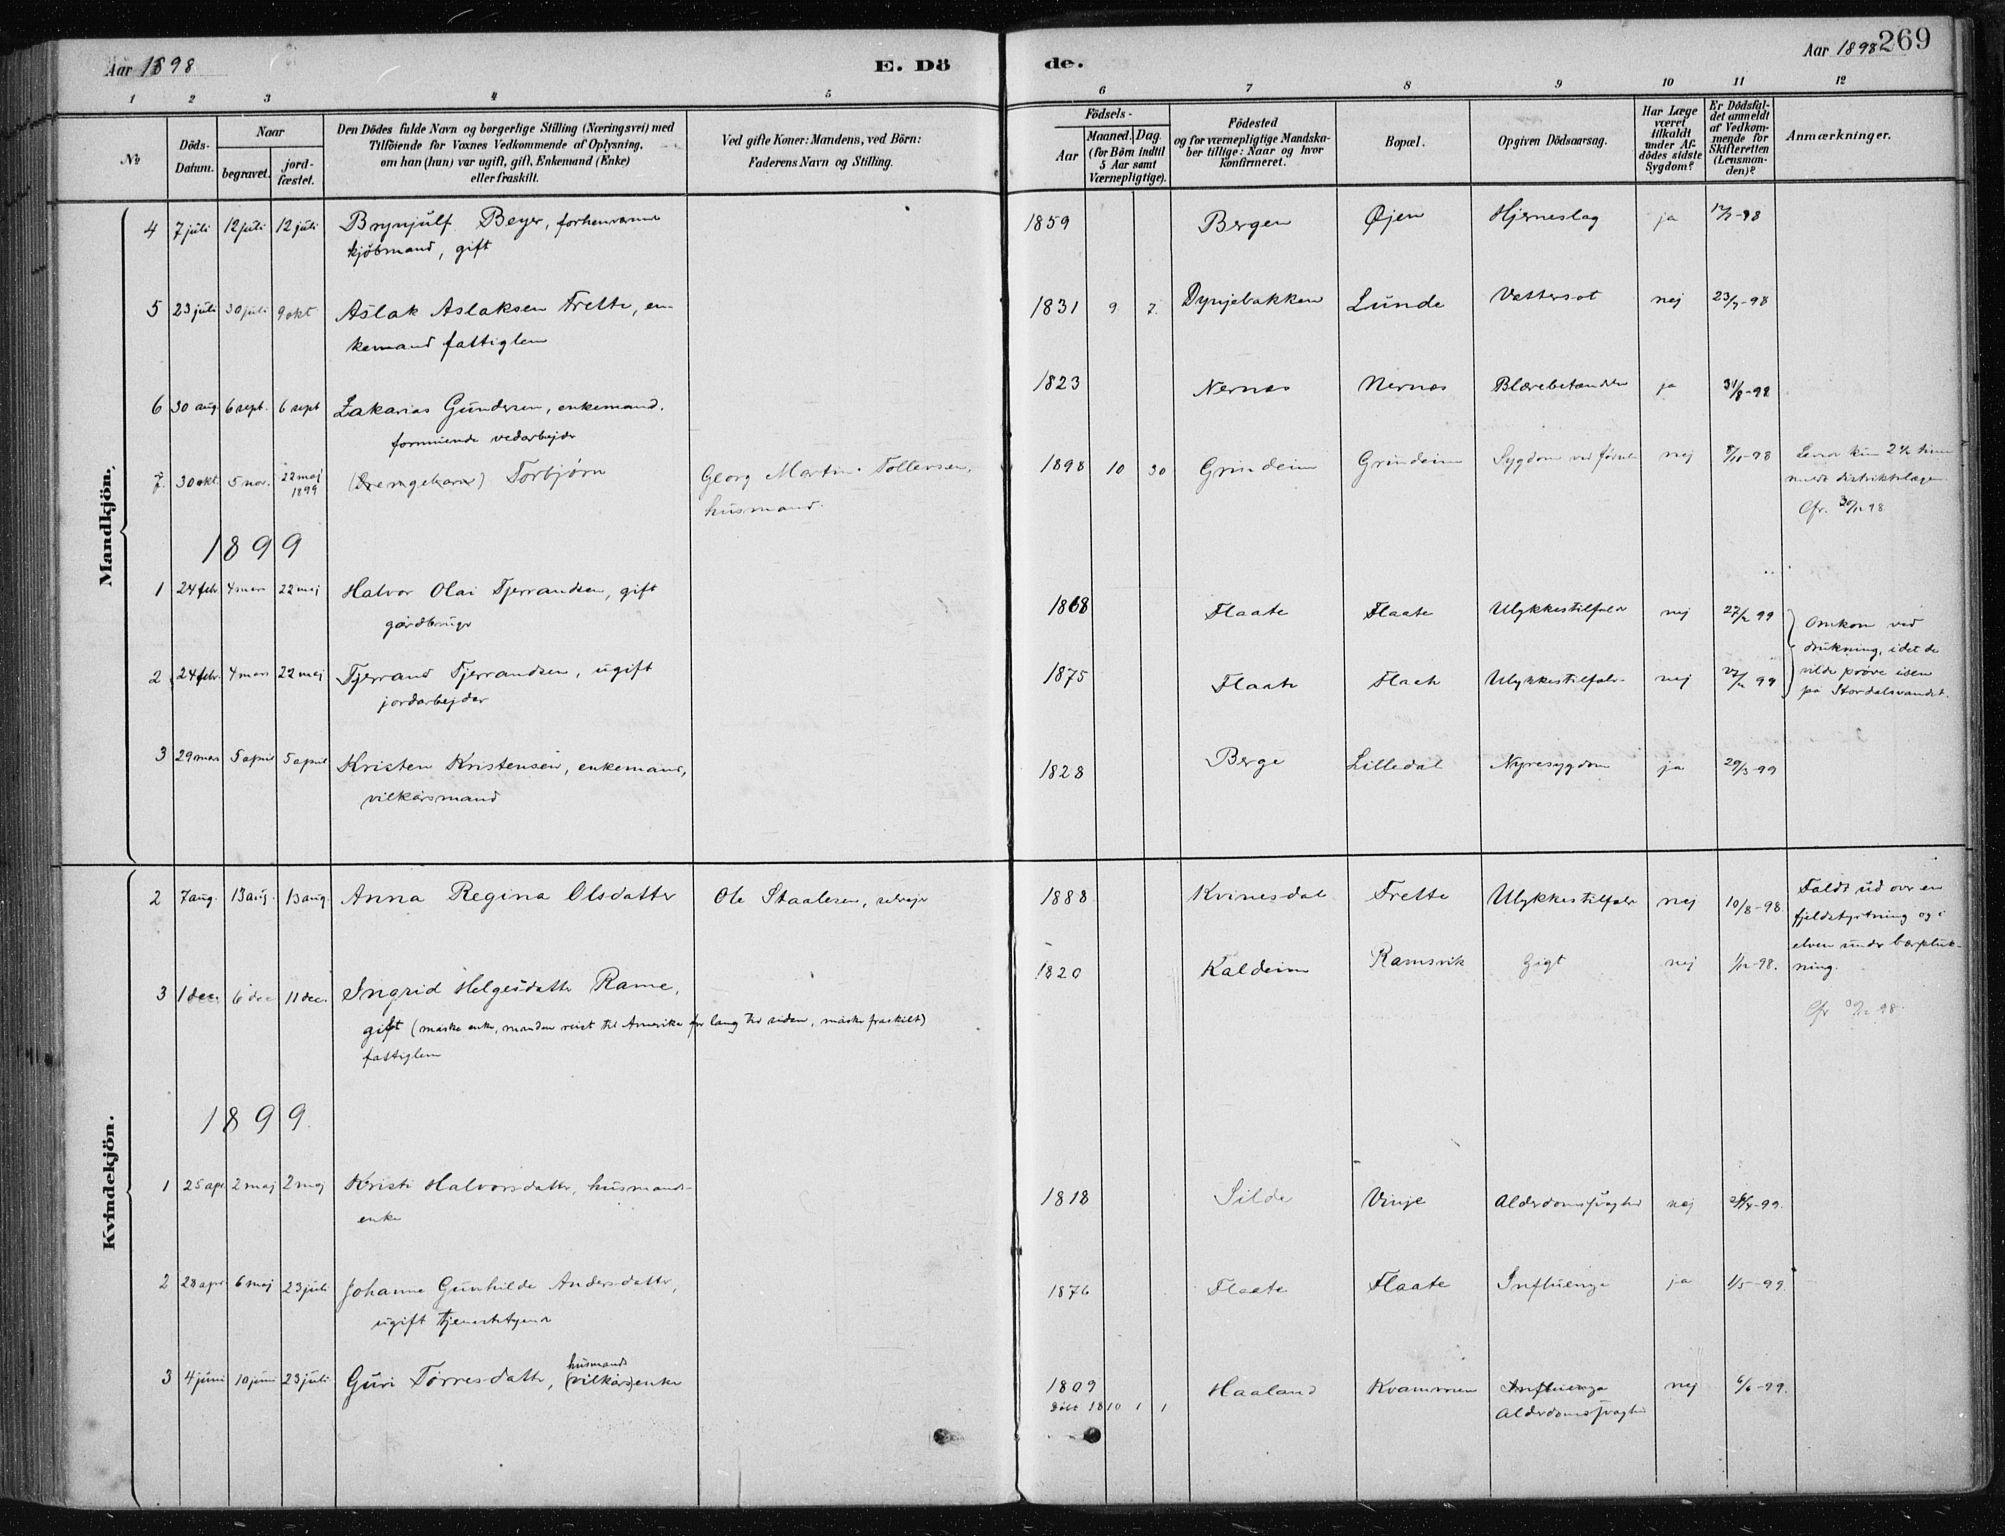 Aar 1898
E. Dö
de.
Aar 1898
269
1 2 3 4 5 6 7 8 9 10 11 12
No
Döds-
Datum.
Naar
begravet.
jord-
fæstet.
Den Dödes fulde Navn og borgerlige Stilling (Næringsvei) med
Tilföiende for Voxnes Vedkommende af Oplysning,
om han (hun) var ugift, gift, Enkemand (Enke)
eller fraskilt.
Ved gifte Koner: Mandens, ved Börn:
Faderens Navn og Stilling.
Födsels-
Aar
Maaned. Dag.
(for Börn indtil
5 Aar samt
Værnepligtige).
Födested
og for værnepligtige Mandska-
ber tillige: Naar og hvor
Konfirmeret.
Bopæl.
Opgiven Dödsaarsag.
Har Læge
været
tilkaldt
under Af-
dödes sidste
Sygdom?
Er Dödsfal-
det anmeldt
af Vedkom-
mende for
Skifteretten
(Lensman-
den)?
Anmærkninger.
Mandkjön,
4 7 juli 12 juli 12 juli Brynjulf Beyer, forhenværende 1859 Bergen Øjen Hjerneslag ja 12/7-98
kjöbmand, gift
5 23 juli 30 juli 9 okt Aslak Aslaksen Frette, en- 1831 9 7. Dynjebakken Lunde Vattersot nej 23/7-98
kemand fattiglem
6 30 aug 6 sept. 6 sept Zakarias Gundersen, enkemand. 1823 Nernæs Nernæs Blærebetændelse ja 31/8-98
forhenværende vedarbejder
7. 30 okt. 5 nov. 22 maj 1899 (Drengebarn) Torbjørn Georg Martin Tollevsen, 1898 10 30 Grindeim Grindeim Sygdom ved føds. nej 8/11-98 Levde kun 2 1/2 time
husmand. meldt distriktslægen
Cfr. 30/11 98
1899
1 24 febr 4 mars 22 maj Halvor Olai Tjerrandsen, gift 1868 Flaate Flaate Ulykkestilfælde nej 27/2 99 Omkom ved
gårdbruger drukning, idet de
2 24 febr. 4 mars 22 maj Tjerrand Tjerrandsen, ugift 1875 Flaate Flaate Ulykkestilfælde nej 27/2 99 vilde prøve isen
jordarbejder på Stordalsvandet.
3 29 mars 5 april 5 april Kristen Kristensen, enkemand, 1828 Berge Lilledal Nyresygdom ja 29/3-99
vilkårsmand
Kvindekjön.
2 7 aug. 13 aug. 13 aug. Anna Regina Olsdatter Ole Staalesen, selvejer 1888 Kvinesdal Frette Ulykkestilfælde nej 10/8-98. Faldt ud over en
fjeldstyrtning og i
elven under bærpluk-
ning.
3 1 dec. 6 dec 11 dec. Ingrid Helgesdatter Rame, 1820 Kaldeim Ramsvik Gigt nej 1/12-98.
gift (måske enke, manden reist til Amerika for lang tid siden, måske fraskilt)
fattiglem
1899.
1 25 apr 2 maj 2 maj Kristi Halvorsdatter, husmands- 1818 Silde Vinje Alderdomssvaghed nej 26/4-99.
enke
2 28 apr 6 maj 23 juli Johanne Gunhilde Andersdatter, 1876 Flaate Flaate Influenza ja 1/5-99.
ugift tjenestetyende
3 4 juni 10 juni 23 juli Guri Torresdatter, husmands (vilkårs) enke 1809 Haaland Kvammen Influenza nej 6/6-99.
döbt 1810 1 1 Alderdomssvaghed